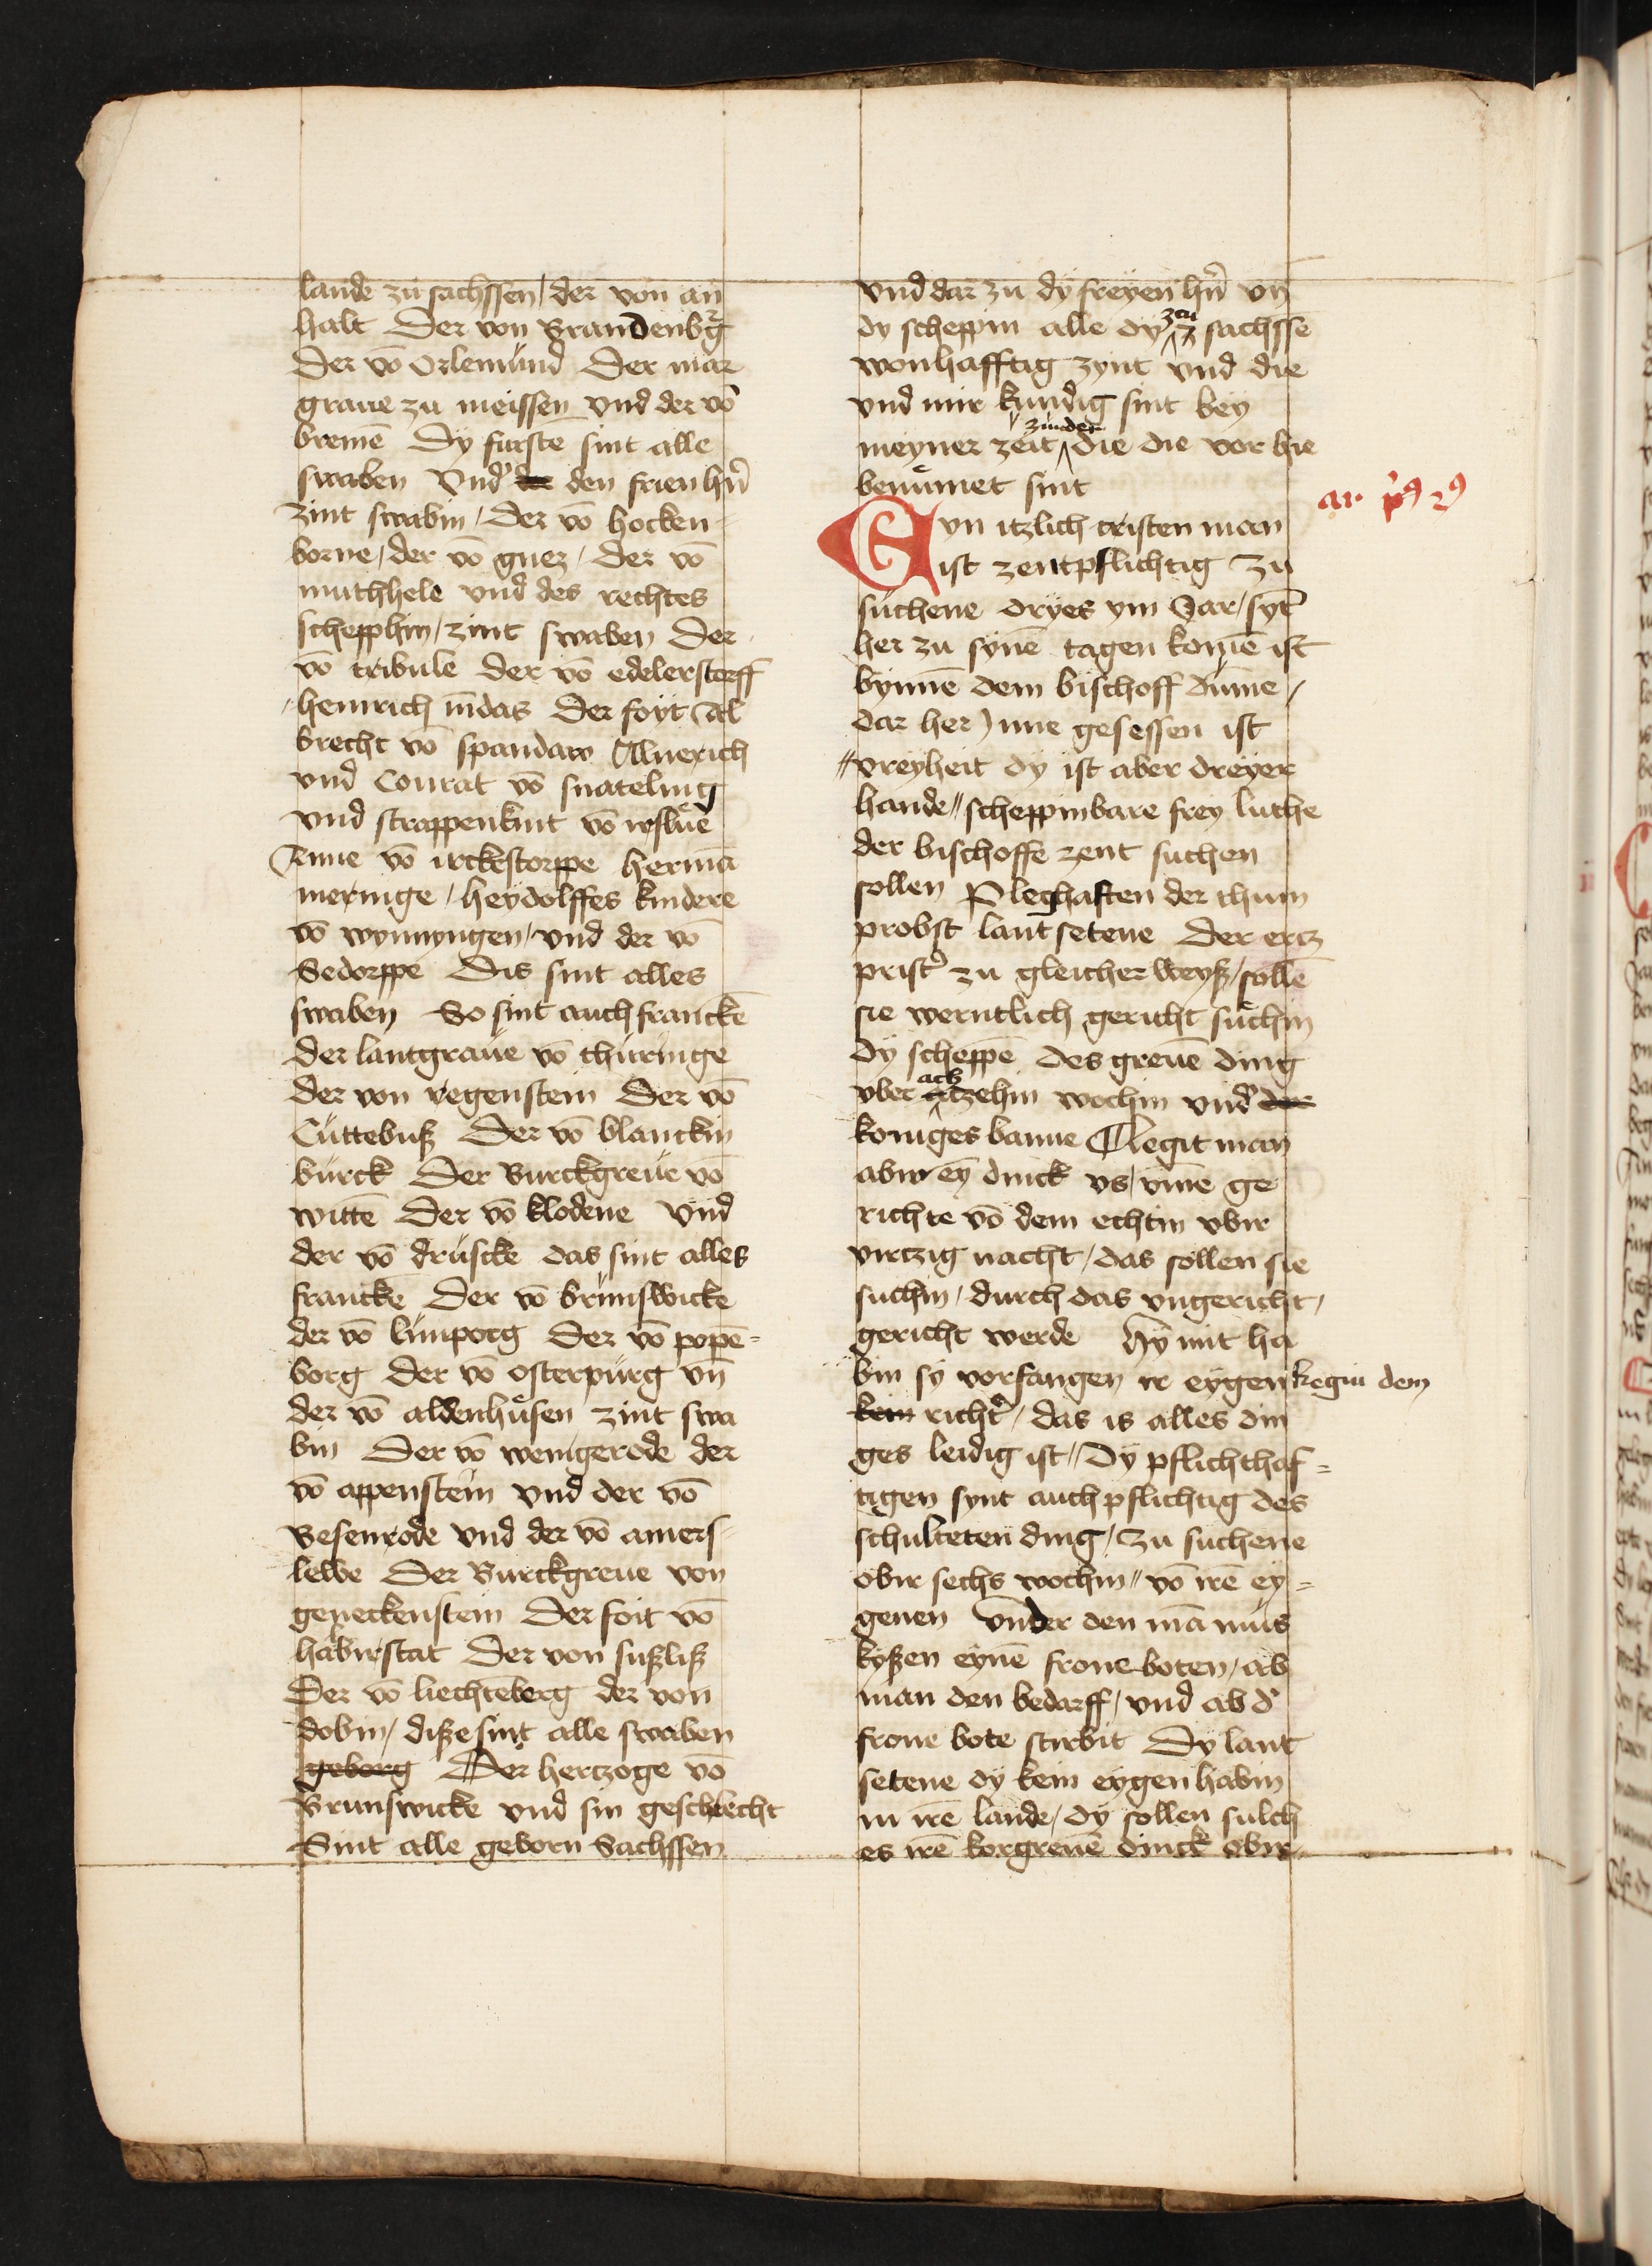 lande zu sachssen / der von an
halt Der von Brandenbg
Der vō Orlemund Der mar
graue zu meissen vnd der vō
bremē Dy furste sint alle
swaben Vnd' der den frien hn̄
zint swabin / Der vō hocken=
borne / der vō gnez / der vō
muthhele vnd des rechtes
schepphin / zint swaben Der
vō tribule der vō edelerstorff
/ henrich iudas Der foyt Al
brecht vō spandaw Alluerich
vnd Conrat vō snateling
vnd scrappenkint vō irsluē
Anne vō irckestorppe hermā
meringe / heydolffes kindere
vō wynnyngen / vnd der vō
Sedorppe Dis sint alles
swaben So sint auch franckē
Der lantgraue vō thuringe
Der von regenstein Der vō
Cuttebuß Der vō blanckin
burck Der Burckgreue vō
wittē Der vō klodene Vnd
der vō druscke das sint alles
franckē Der vō brunswicke
der vō limporg Der vō popē=
borg der vō osterpurg vn̄
der vō aldenhusen zint swa
bin Der vō wenigerode der
vō appenstein vnd der vō
Besenrode vnd der vō amers=
lewe Der Burckgreue von
geneckenstein Der foit vō
habirstat Der von sußliß
Der vō liechtēberg der von
dobin / diße sint alle swaben
geborg Der hertzoge vō
Brunswicke vnd sin geschlecht
Sint alle geborn Sachssen
vnd dar zu dy freyen hn̄ vn̄
dy scheppin alle dy zcu z sachssē
wonhafftig zynt vnd die
vnd mir kundig sint bey
meyner zeit zinder die die vor hie
benumet sint
ar p9 29
Eyn itzlich cristen man
ist zentpflichtig zu
suchene dryes ym Jar / syt
her zu synē tagen komē ist
bynnē dem bischoff dume /
dar her Jnne gesessen ist
// vreyheit dy ist aber dreyer
hande // scheppinbare frey luthe
der bischoffe zent suchen
sollen Pleghaften der thum
probst lantsetene Der ertz
prist' zu gleicher weyß / sollē
sie werntlich gericht suchin
Dy scheppē des greuē ding
vber ach atzehin wochin vnd' der
koniges banne Clegit man
abir eȳ dinck vs / vmē ge
richte vō dem echtin vbir
virtzig nacht / das sollen sie
suchin / durch das vngericht /
gericht werde Hy mit ha
bin sy vorfangen ir eygen kegin dem
kein richt' / das is alles din
ges leidig ist // Dy pflichthaf=
tigen synt auch pflichtig des
schulteten ding / zu suchene
obir sechs wochin // vō irē ey=
genen vnder den mā mus
kyßen eynē frone boten / ab
man den bedarff / vnd ab d'
frone bote stirbit Dy lant
setene dy kein eygen habin
in irē lande / dy sollen sulch
es irē korgreuē dinck obir